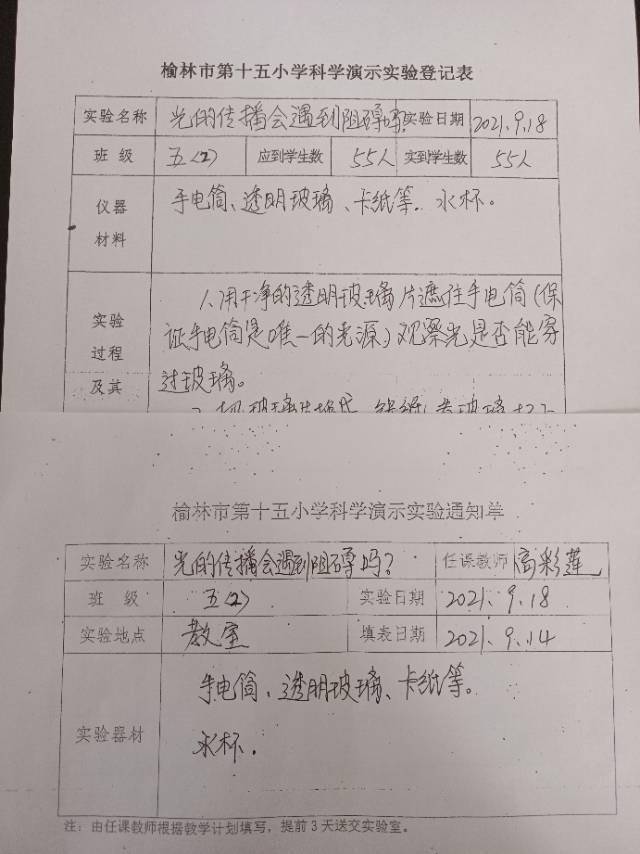 榆林市第十五小学科学演示实验登记表
实验名称 光的传播会遇到阻碍吗? 实验日期 2021.9.18
班 级 五(2) 应到学生数 55人 实到学生数 55人
仪器 手电筒、透明玻璃、卡纸等. 水杯。
材料
1、用干净的透明玻璃片遮住手电筒(保
实验 证手电筒是唯一的光源)观察光是否能穿
过程 过玻璃。
及其
榆林市第十五小学科学演示实验通知单
实验名称 光的传播会遇到阻碍吗? 任课教师 高彩莲
班 级 五(2) 实验日期 2021.9.18
实验地点 教室 填表日期 2021.9.14
手电筒、透明玻璃、卡纸等。
实验器材 水杯.
注:由任课教师根据教学计划填写,提前3天送交实验室。